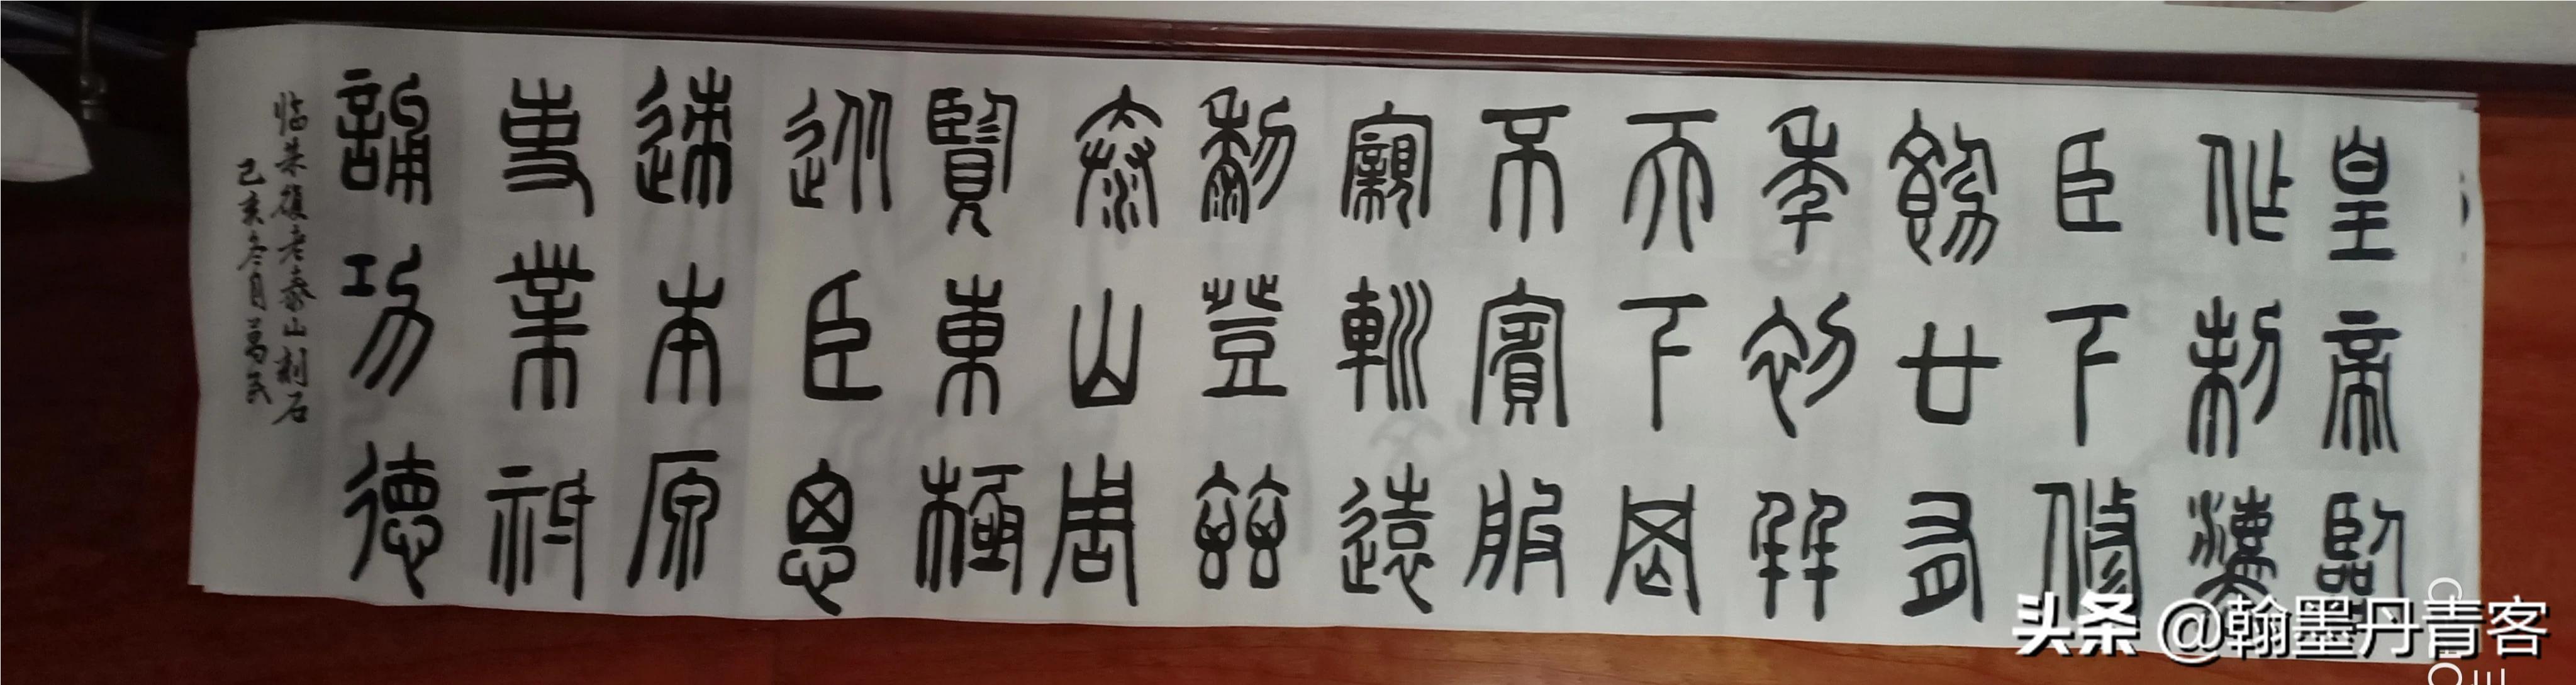 皇帝臨
作制灋
臣下修
飭廿有
年初并
天下罔
不賓服
寴巡遠
黎登茲
泰山周
覽東極
從臣思
迹本原
事業祗
誦功德
临朱復老泰山刻石
己亥冬月
头条 @翰墨丹青客